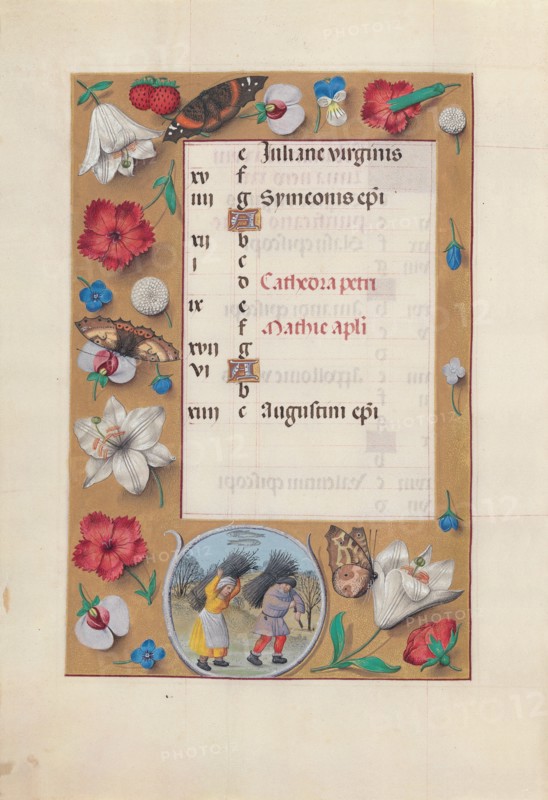 e Juliane virginis
xv f
iiij g Symeonis ep̄i
A
xij b
j c
d Cathedra petri
ix e
f Mathie apl̄i
xvij g
vj A
b
xiiij c Augustini ep̄i
PHOTO12